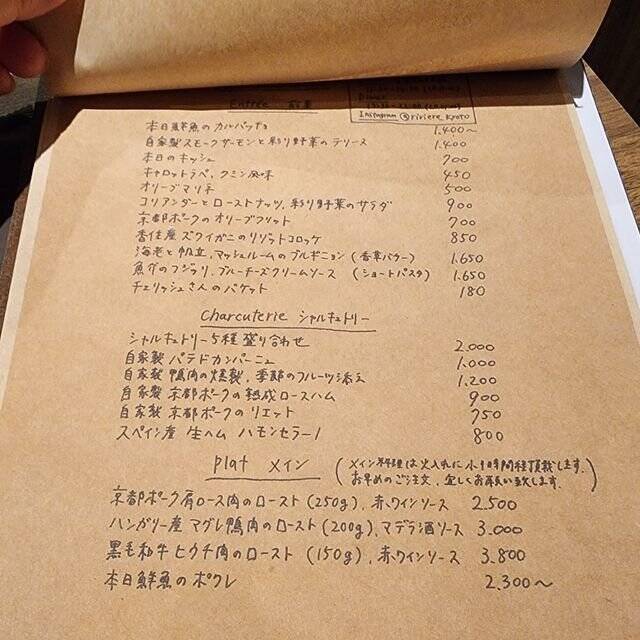 Instagram @riviere_kyoto
Entrée 前菜
本日鮮魚のカルパッチョ 1.400〜
自家製スモークサーモンと彩り野菜のテリーヌ 1.400
本日のキッシュ 700
キャロットラペ、クミン風味 450
オリーブマリネ 500
コリアンダーとローストナッツ、彩り野菜のサラダ 900
京都ポークのオリーブフリット 700
香住産ズワイガニのリゾットコロッケ 850
海老と帆立、マッシュルームのブルギニョン (香草バター) 1.650
魚介のフジッリ、ブルーチーズクリームソース (ショートパスタ) 1.650
チェリッシュさんのバケット 180
Charcuterie シャルキュトリー
シャルキュトリー5種盛り合わせ 2.000
自家製 パテドカンパーニュ 1.000
自家製 鴨肉の燻製、季節のフルーツ添え 1.200
自家製 京都ポークの熟成ロースハム 900
自家製 京都ポークのリエット 750
スペイン産 生ハム ハモンセラーノ 800
plat メイン
(メイン料理は火入れに小1時間程頂戴します。
お早めのご注文、宜しくお願い致します。)
京都ポーク肩ロース肉のロースト (250g)、赤ワインソース 2.500
ハンガリー産 マグレ鴨肉のロースト (200g)、マデラ酒ソース 3.000
黒毛和牛ヒウチ肉のロースト (150g)、赤ワインソース 3.800
本日鮮魚のポワレ 2.300〜